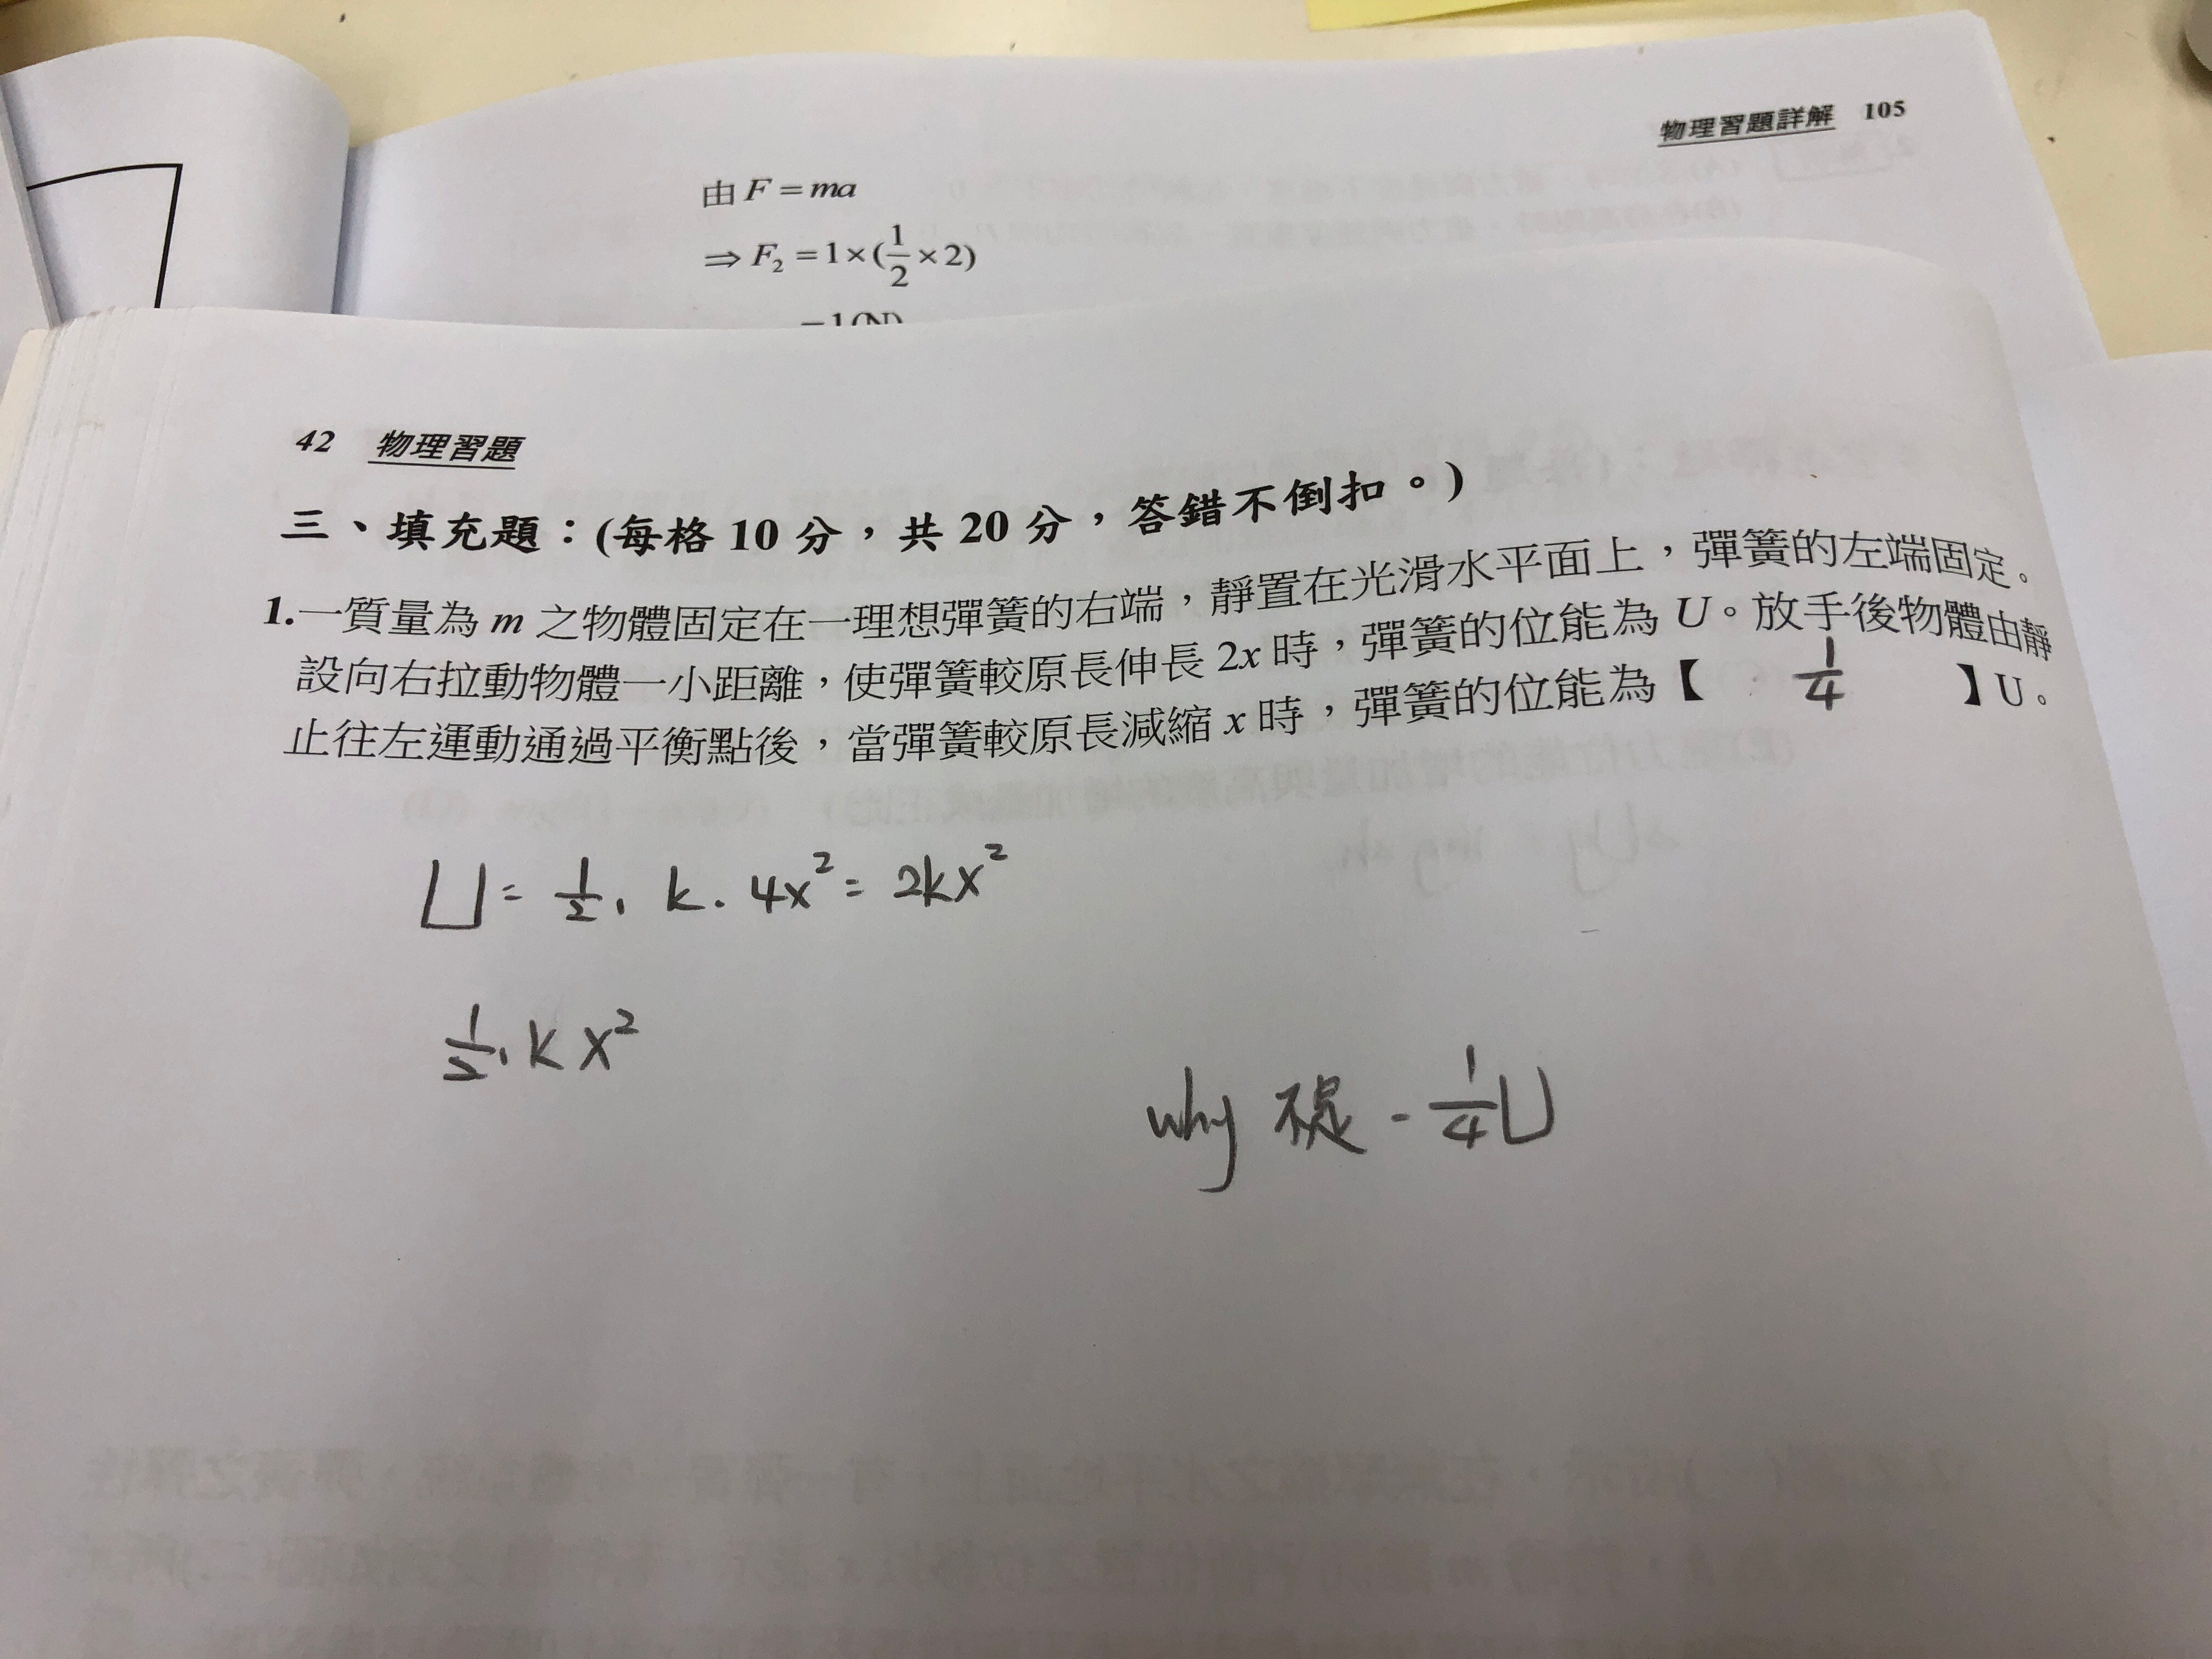 物理習題詳解 105
由 F = ma
⇒ F₂ = 1×(1/2×2)
=1(N)
42 物理習題
三、填充題：(每格 10 分，共 20 分，答錯不倒扣。)
1.一質量為 m 之物體固定在一理想彈簧的右端，靜置在光滑水平面上，彈簧的左端固定。
設向右拉動物體一小距離，使彈簧較原長伸長 2x 時，彈簧的位能為 U。放手後物體由靜
止往左運動通過平衡點後，當彈簧較原長減縮 x 時，彈簧的位能為【 1/4 】U。
U = 1/2 · k · 4x² = 2kx²
1/2 · k x²
why 不是 - 1/4 U